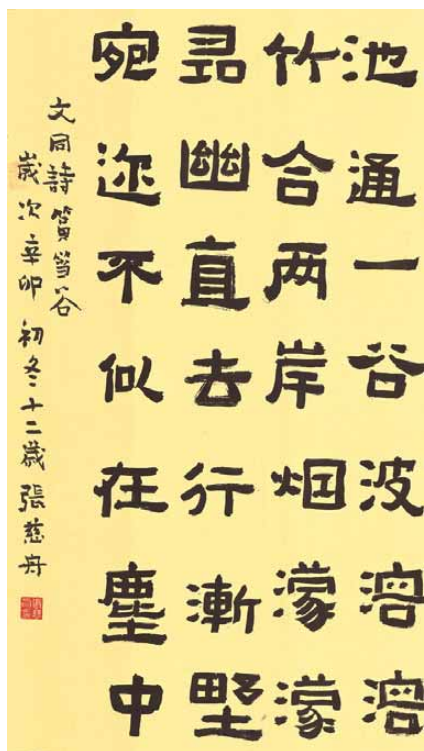 池通一谷波溶溶
竹合两岸烟濛濛
尋幽直去行漸野
宛迩不似在塵中
文同詩篔簹谷
歲次辛卯初冬十二歲張慈舟